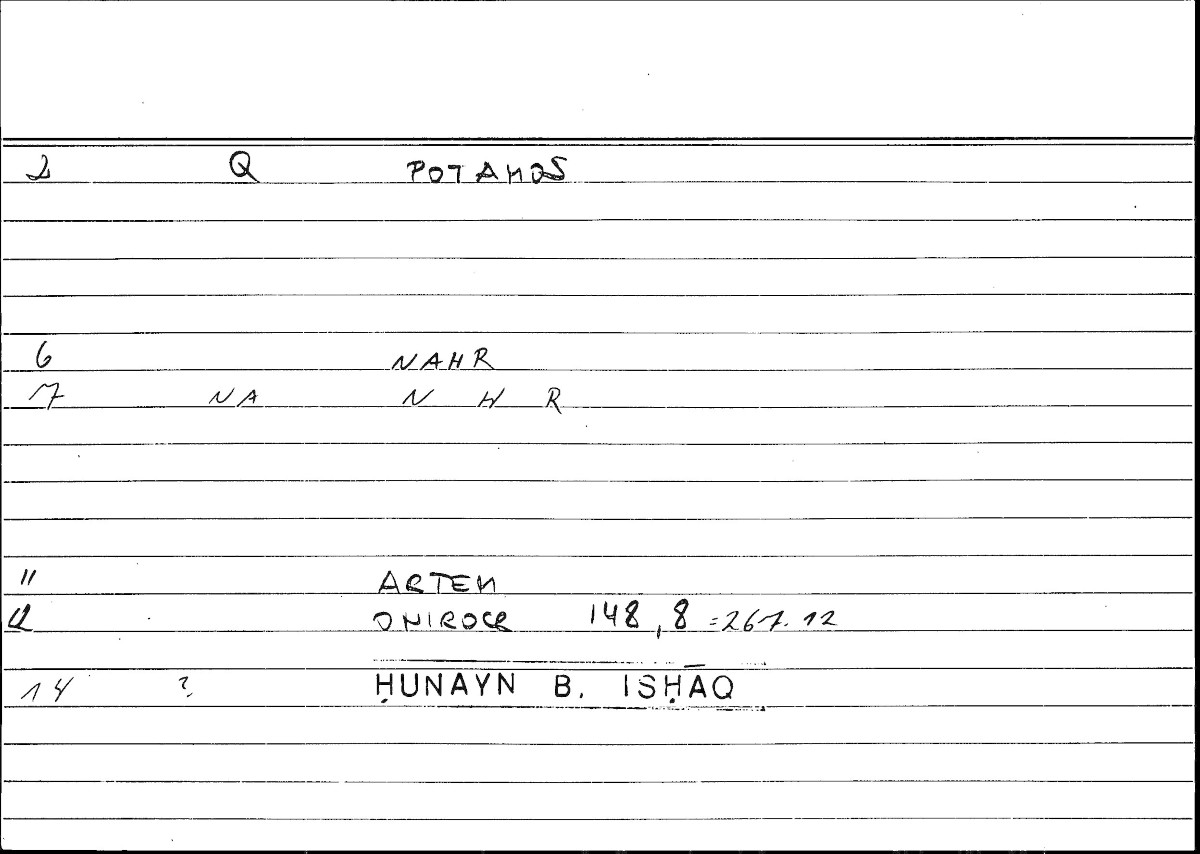 2 Q POTAMOS
6 NAHR
7 NA N H R
11 ARTEM
12 ONIROCR 148,8 =267.12
14 ? ḤUNAYN B. ISḤĀQ